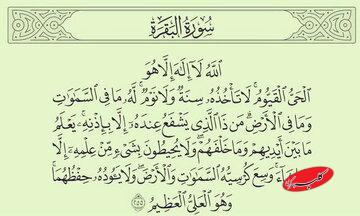 سُورَةُ البَقَرَةِ
اللَّهُ لَا إِلَٰهَ إِلَّا هُوَ
الْحَيُّ الْقَيُّومُ ۚ لَا تَأْخُذُهُ سِنَةٌ وَلَا نَوْمٌ ۚ لَهُ مَا فِي السَّمَاوَاتِ
وَمَا فِي الْأَرْضِ ۗ مَن ذَا الَّذِي يَشْفَعُ عِندَهُ إِلَّا بِإِذْنِهِ ۚ يَعْلَمُ
مَا بَيْنَ أَيْدِيهِمْ وَمَا خَلْفَهُمْ ۖ وَلَا يُحِيطُونَ بِشَيْءٍ مِّنْ عِلْمِهِ إِلَّا
شَاءَ ۚ وَسِعَ كُرْسِيُّهُ السَّمَاوَاتِ وَالْأَرْضَ ۖ وَلَا يَئُودُهُ حِفْظُهُمَا ۚ
وَهُوَ الْعَلِيُّ الْعَظِيمُ ٢٥٥